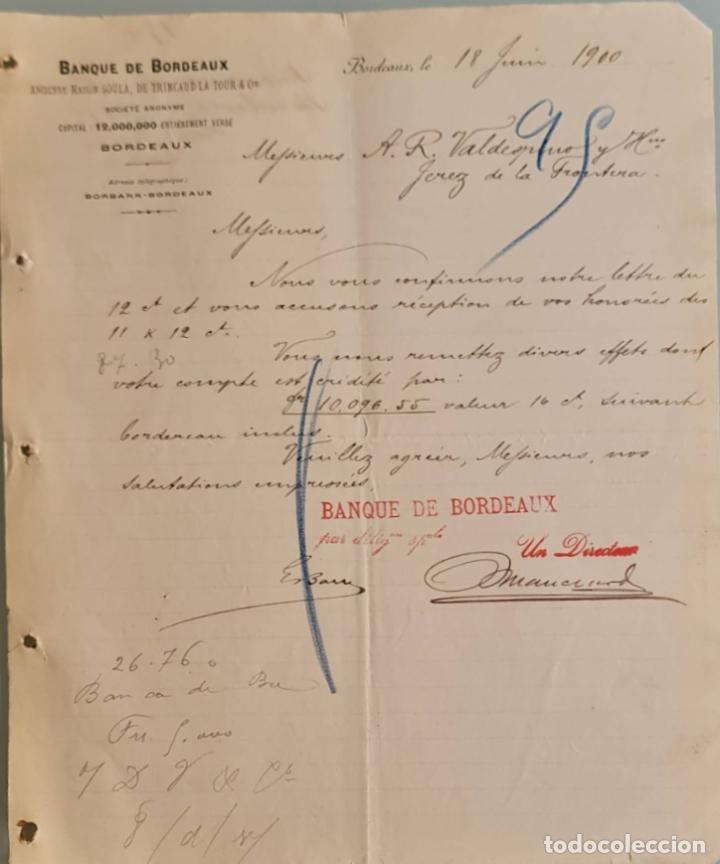 BANQUE DE BORDEAUX
ANCIENNE RAISON SOULA, DE TRINCAUD LA TOUR & Cie
SOCIÉTÉ ANONYME
CAPITAL : 12,000,000 ENTIÈREMENT VERSÉ
BORDEAUX
Adresse télégraphique :
BORBANK-BORDEAUX
Bordeaux, le 18 Juin 1900
95
Messieurs A. R. Valdespino y Hno
Jerez de la Frontera.
Messieurs,
Nous vous confirmons notre lettre du
12 ct et vous accusons réception de vos honorées des
11 & 12 ct.
87.30
Vous nous remettez divers effets dont
votre compte est crédité par:
10.096.55 valeur 16 ct, suivant
bordereau inclus.
Veuillez agréer, Messieurs, nos
salutations empressées,
BANQUE DE BORDEAUX
par délégon sple
Un Directeur
26-76
Banca de
Frs. 5.000
8/d/v/
todocoleccion
todocoleccion.net